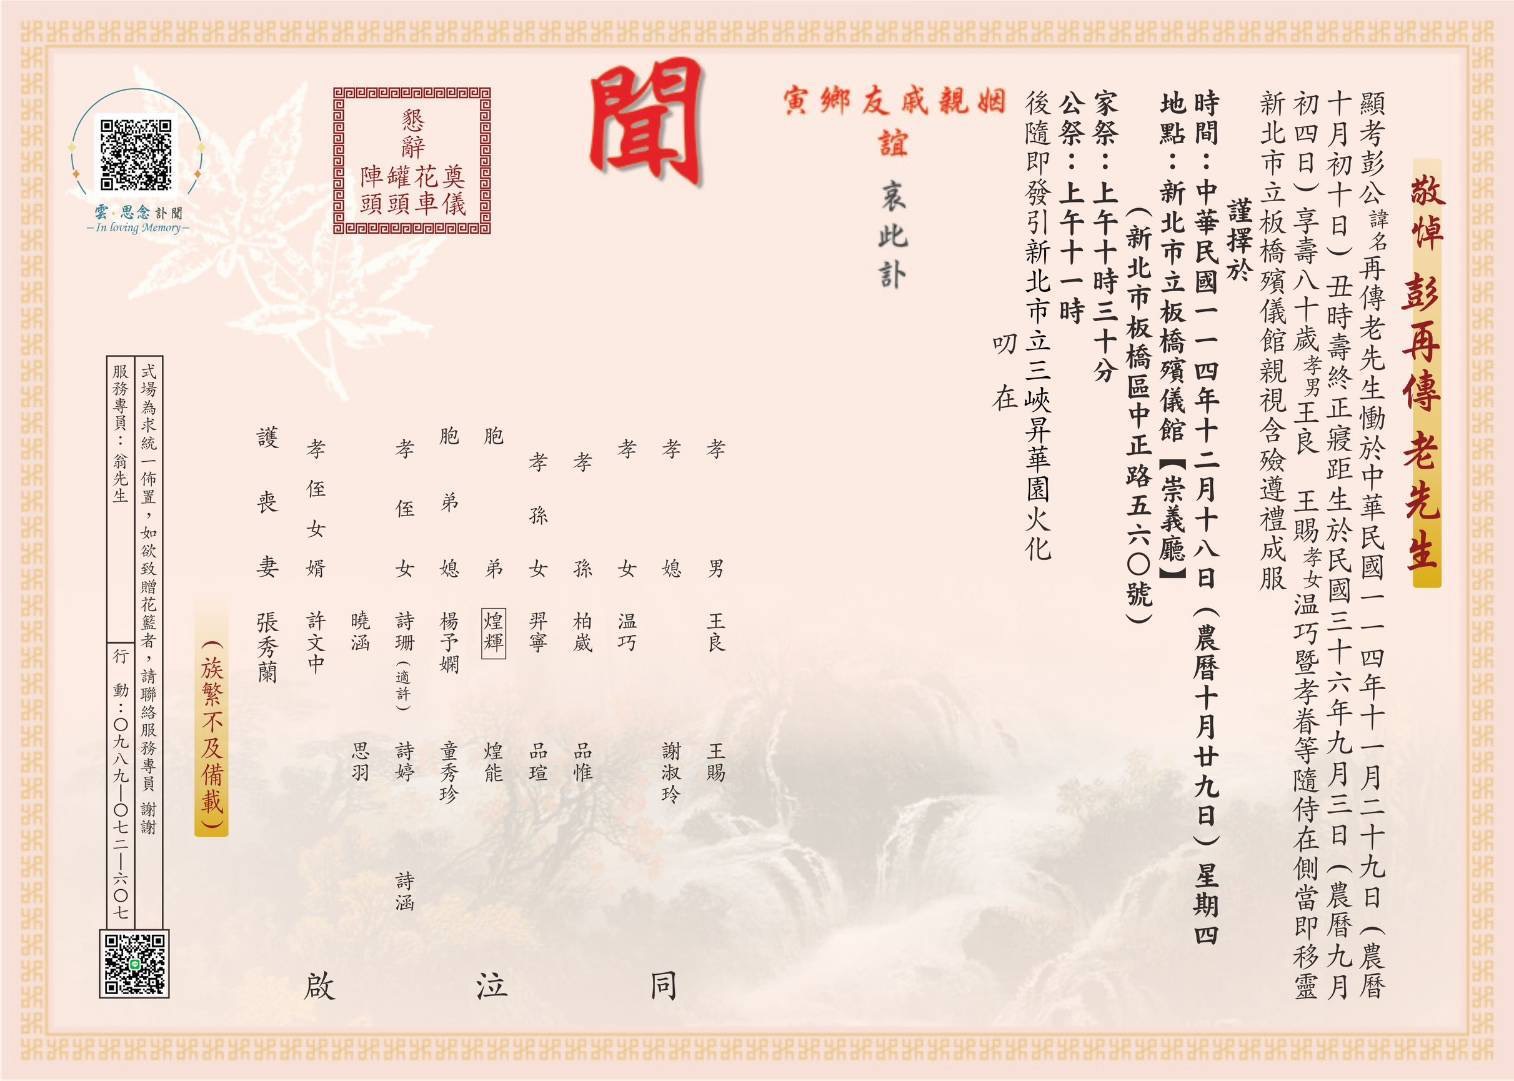 敬悼 彭再傳 老先生
顯考彭公諱名再傳老先生慟於中華民國一一四年十一月二十九日(農曆
十月初十日)丑時壽終正寢距生於民國三十六年九月三日(農曆九月
初四日)享壽八十歲孝男王良 王賜孝女温巧暨孝眷等隨侍在側當即移靈
新北市立板橋殯儀館親視含殮遵禮成服
謹擇於
時間:中華民國一一四年十二月十八日(農曆十月廿九日)星期四
地點:新北市立板橋殯儀館【崇義廳】
(新北市板橋區中正路五六〇號)
家祭:上午十時三十分
公祭:上午十一時
後隨即發引新北市立三峽昇華園火化
叨在
姻親戚友鄉寅
誼
哀此訃
聞
孝男 王良 王賜
孝媳 謝淑玲
孝女 温巧
孝孫 柏崴 品惟
孝孫女 羿寧 品瑄
胞弟 煌輝 煌能
胞弟媳 楊予嫻 童秀珍
孝侄女 詩珊(適許) 詩婷 詩涵
曉涵 思羽
孝侄女婿 許文中
護喪妻 張秀蘭
同泣啟
(族繁不及備載)
懇辭
奠儀
花車
罐頭
陣頭
雲·思念訃聞
In loving Memory
式場為求統一佈置,如欲致贈花籃者,請聯絡服務專員 謝謝
服務專員:翁先生
行動:〇九八九—〇七二—六〇七